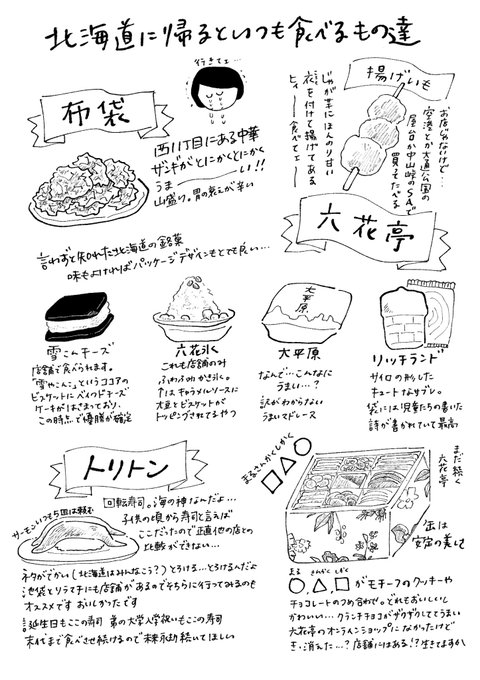 北海道に帰るといつも食べるもの達
行きてェ…
布袋
西11丁目にある中華
ザンギがとにかくとにかく
うま――――い!!
山盛り。胃の衰えが辛い
揚げいも
お店じゃないけど…
空港とか大通公園の
屋台か中山峠のSAで
買ってたべる
じゃが芋にほんのり甘い
衣を付けて揚げてある
ヒィ――食べてェ――
六花亭
言わずと知れた北海道の銘菓
味もよければパッケージデザインもとても良い…
雪こんチーズ
店舗で食べられます。
「雪やこんこ」というココアの
ビスケットにベイクドチーズ
ケーキがはさまっており、
この時点で優勝が確定
六花氷
これも店舗のみ
ふわふわかき氷。
↑はキャラメルソースに
大豆とビスケットが
トッピングされてるやつ
大平原
大平原
なんで…こんなに
うまい…?
訳がわからない
うまいマドレーヌ
リッチランド
サイロの形した
キュートなサブレ。
袋には児童たちの書いた
詩が書かれていて最高
トリトン
サーモンいつも5皿は頼む
回転寿司。海の神なんだよ…
子供の頃から寿司と言えば
ここだったので正直他の店との
比較ができない…
ネタがでかい(北海道はみんなこう?)とろける…とろけるんだよ
池袋とソラマチにも店舗があるのでそちらに行ってみるのも
オススメです おいしかったです
誕生日もここの寿司 弟の大学入学祝いもここの寿司
末代まで食べさせ続けるので未来永劫続いてほしい
まるさんかくしかく
○△□
まだ続く
六花亭
缶は
安定の美しさ
まる さんかく しかく
○,△,□がモチーフのクッキーや
チョコレートのつめ合わせ。どれもおいしいし
かわいい…クランチチョコがザクザクしててうまい
六花亭のオンラインショップになかったけど
き・消えた…?店舗にはある!?生きてますか